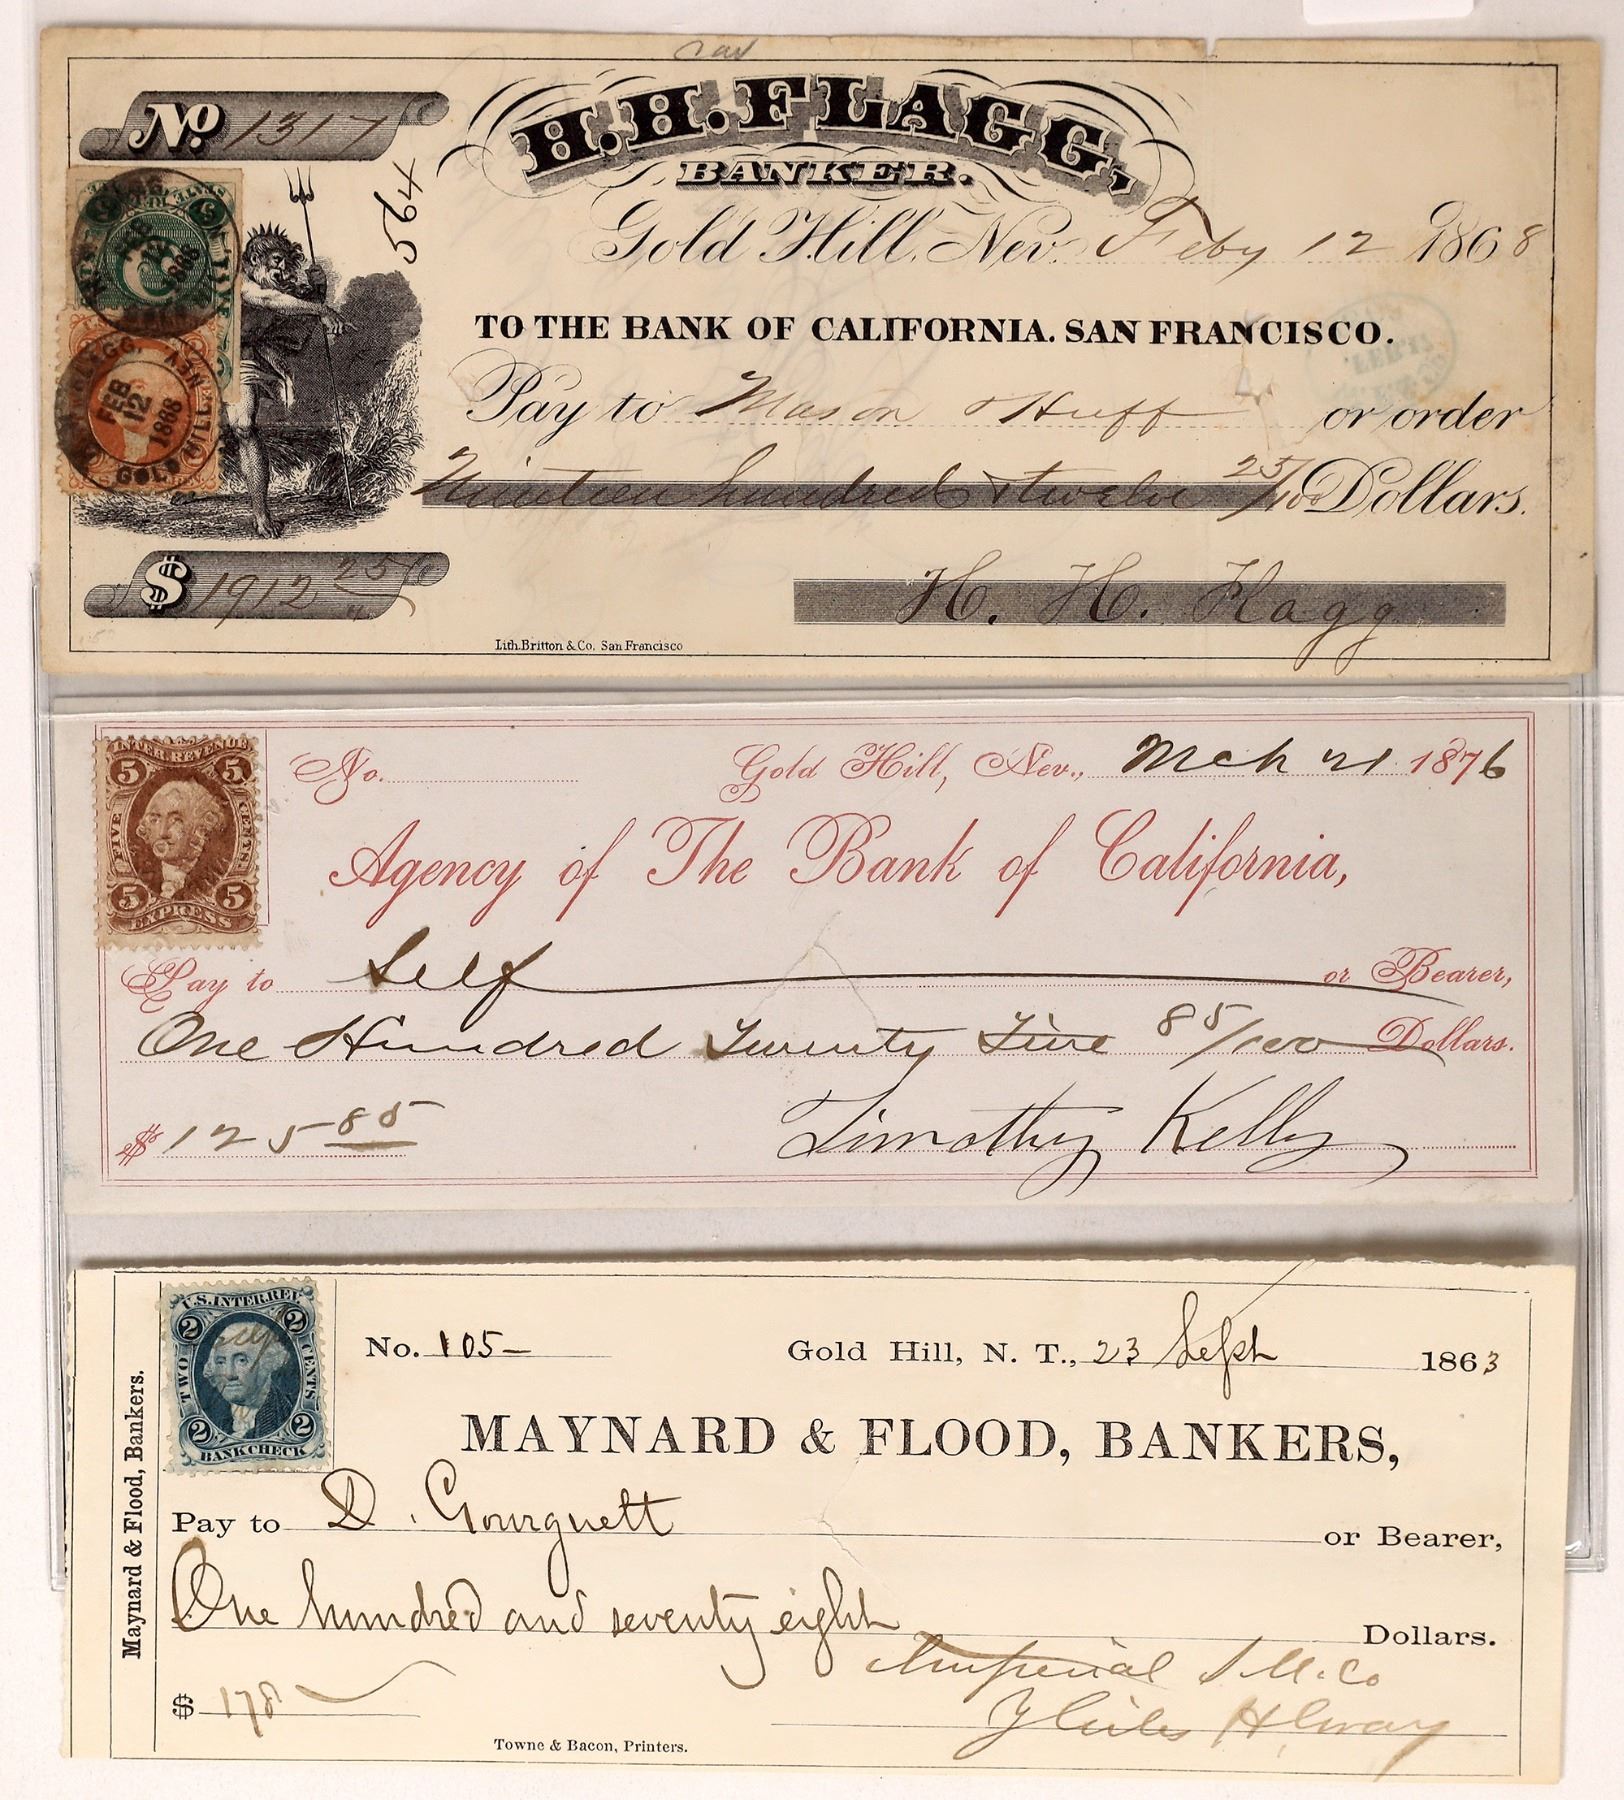 No 1317
H. H. FLAGG,
BANKER.
564
Gold Hill, Nev. Feby 12 1868
TO THE BANK OF CALIFORNIA. SAN FRANCISCO.
Pay to Mason & Huff or order
Nineteen hundred & twelve 25/100 Dollars.
GOLD HILL, NEV.
FEB
12
1868
$ 1912 25
H. H. Flagg
Lith. Britton & Co. San Francisco
INTER. REVENUE
5 5
FIVE CENTS.
5 5
EXPRESS
No.
Gold Hill, Nev., Mch 21 1876
Agency of The Bank of California,
Pay to Self or Bearer,
One Hundred Twenty Five 85/100 Dollars.
$ 125 85
Timothy Kelly
Maynard & Flood, Bankers.
U.S. INTER. REV.
2 2
TWO CENTS
2 2
BANK CHECK
No. 105-
Gold Hill, N. T., 23 Sept 1863
MAYNARD & FLOOD, BANKERS,
Pay to D. Gourguett or Bearer,
One hundred and seventy eight Dollars.
Imperial S M. Co
$ 178
Towne & Bacon, Printers.